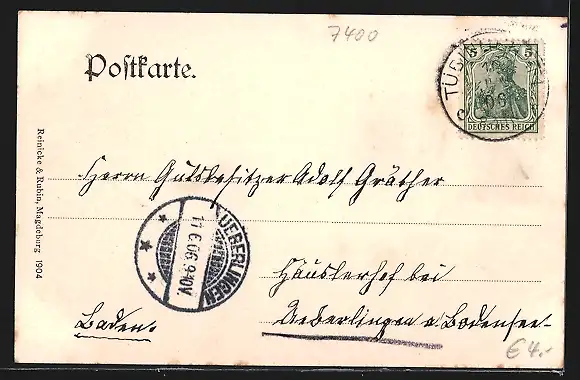 7400
Postkarte.
TÜBI
06
5
DEUTSCHES REICH
Herrn Gutsbesitzer Adolf Gräther
UEBERLINGEN
11.6.06.9-10V.
Häuslerhof bei
Ueberlingen a. Bodensee.
Baden.
€ 4.-
Reinicke & Rubin, Magdeburg 1904